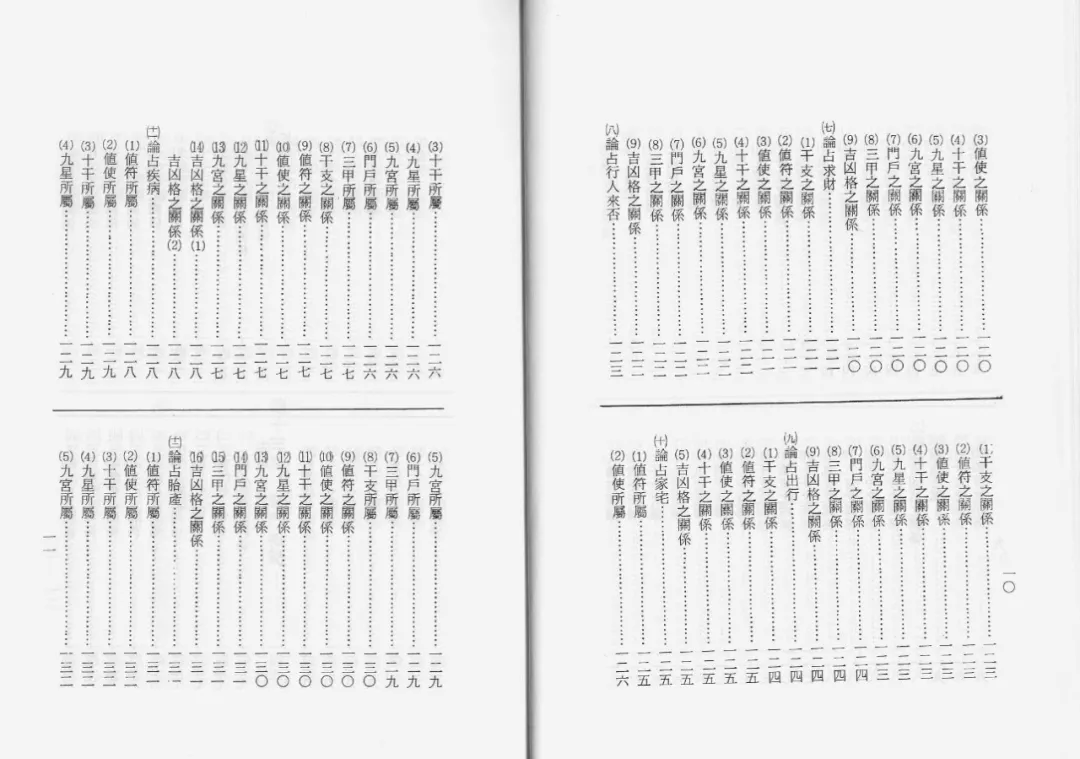 (3)值使之關係……一二〇
(4)十干之關係……一二〇
(5)九星之關係……一二〇
(6)九宮之關係……一二〇
(7)門戶之關係……一二〇
(8)三甲之關係……一二〇
(9)吉凶格之關係……一二〇
㈦論占求財……一二一
(1)干支之關係……一二一
(2)值符之關係……一二一
(3)值使之關係……一二一
(4)十干之關係……一二二
(5)九星之關係……一二二
(6)九宮之關係……一二二
(7)門戶之關係……一二二
(8)三甲之關係……一二二
(9)吉凶格之關係……一二二
㈧論占行人來否……一二三
(1)干支之關係……一二三
(2)值符之關係……一二三
(3)值使之關係……一二三
(4)十干之關係……一二三
(5)九星之關係……一二三
(6)九宮之關係……一二三
(7)門戶之關係……一二四
(8)三甲之關係……一二四
(9)吉凶格之關係……一二四
㈨論占出行……一二四
(1)干支之關係……一二四
(2)值符之關係……一二五
(3)值使之關係……一二五
(4)十干之關係……一二五
(5)吉凶格之關係……一二五
㈩論占家宅……一二五
(1)值符所屬……一二五
(2)值使所屬……一二六
一〇
(3)十干所屬……一二六
(4)九星所屬……一二六
(5)九宮所屬……一二六
(6)門戶所屬……一二六
(7)三甲所屬……一二七
(8)干支之關係……一二七
(9)值符之關係……一二七
(10)值使之關係……一二七
(11)十干之關係……一二七
(12)九星之關係……一二七
(13)九宮之關係……一二七
(14)吉凶格之關係(1)……一二八
吉凶格之關係(2)……一二八
(十一)論占疾病……一二八
(1)值符所屬……一二八
(2)值使所屬……一二九
(3)十干所屬……一二九
(4)九星所屬……一二九
(5)九宮所屬……一二九
(6)門戶所屬……一二九
(7)三甲所屬……一二九
(8)干支所屬……一三〇
(9)值符之關係……一三〇
(10)值使之關係……一三〇
(11)十干之關係……一三〇
(12)九星之關係……一三〇
(13)九宮之關係……一三〇
(14)門戶之關係……一三一
(15)三甲之關係……一三一
(16)吉凶格之關係……一三一
(十二)論占胎產……一三一
(1)值符所屬……一三一
(2)值使所屬……一三二
(3)十干所屬……一三二
(4)九星所屬……一三二
(5)九宮所屬……一三二
一一